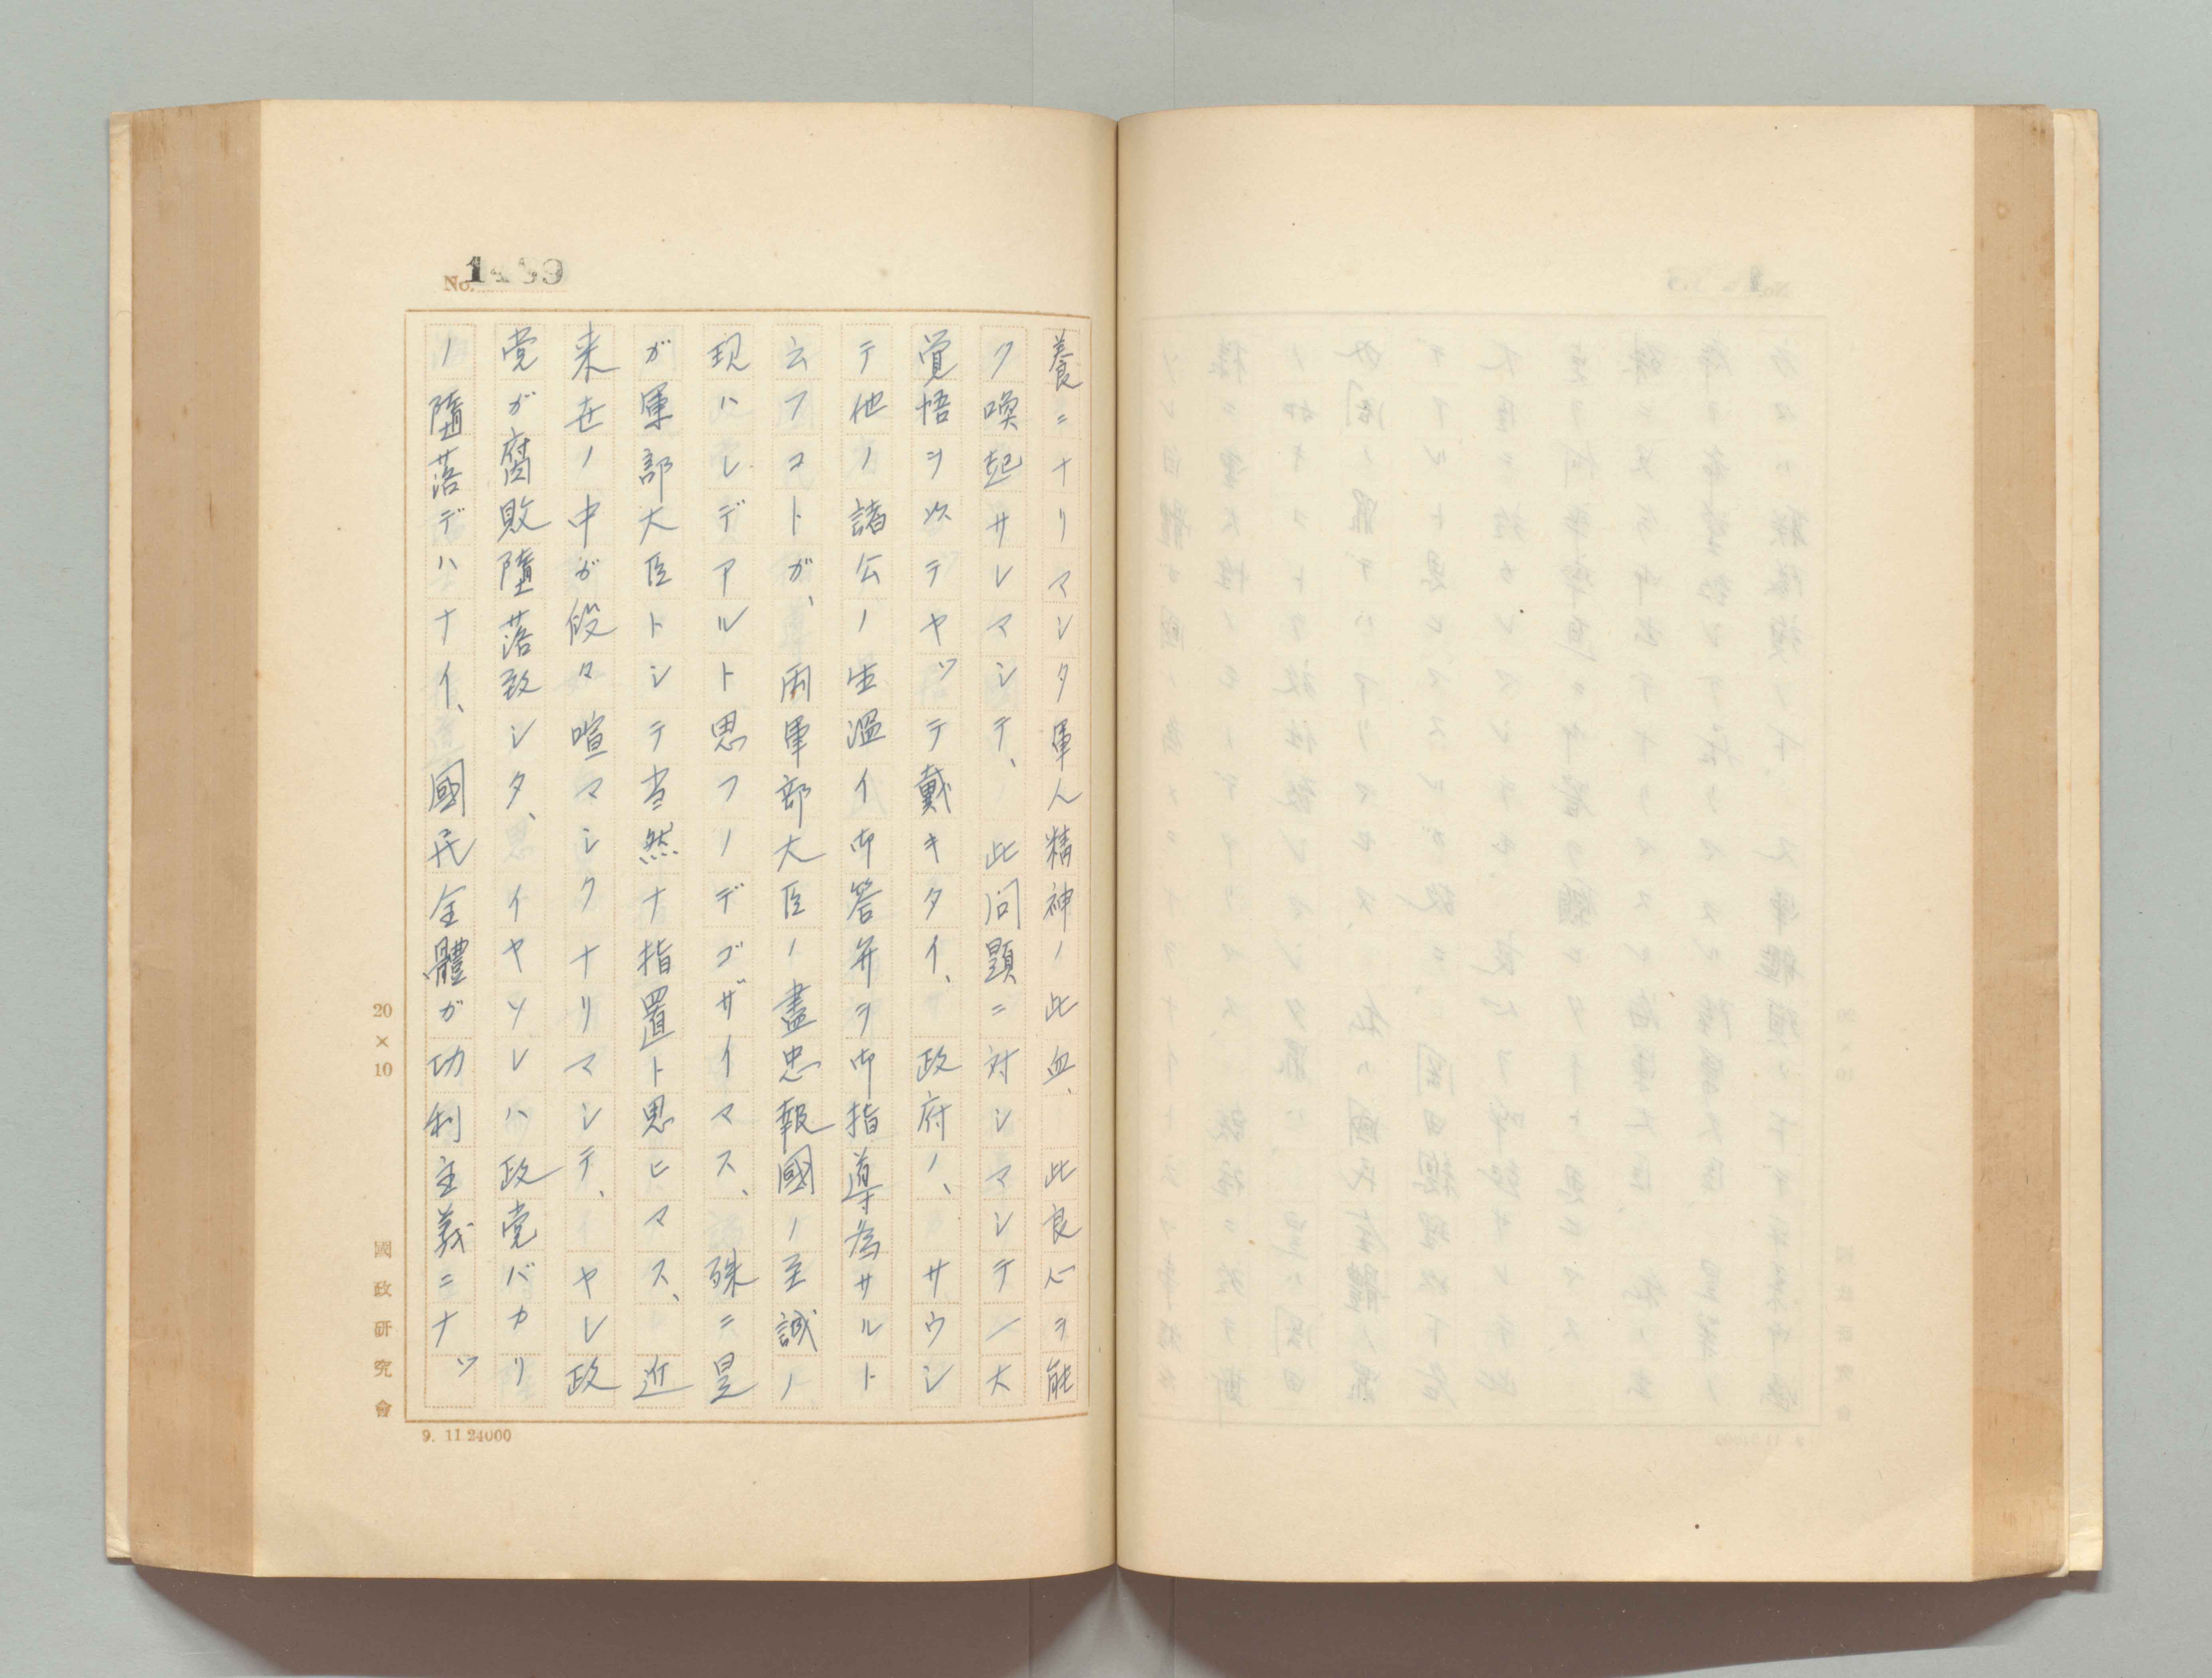 No. 1489
養ニナリマシタ軍人精神ノ此血、此良心ヲ能
ク喚起サレマシテ、此問題ニ対シマシテ一大
覚悟ヲ以テヤツテ戴キタイ、政府ノ、サウシ
テ他ノ諸公ノ生温イ御答弁ヲ御指導為サルト
云フコトガ、両軍部大臣ノ盡忠報國ノ至誠ノ
現ハレデアルト思フノデゴザイマス、殊ニ是
ガ軍部大臣トシテ当然ナ指置ト思ヒマス、近
来世ノ中ガ段々喧マシクナリマシテ、ヤレ政
党ガ腐敗墮落致シタ、イヤソレハ政党バカリ
ノ墮落デハナイ、國民全體ガ功利主義ニナツ
20×10
國政研究會
9. 11 24000